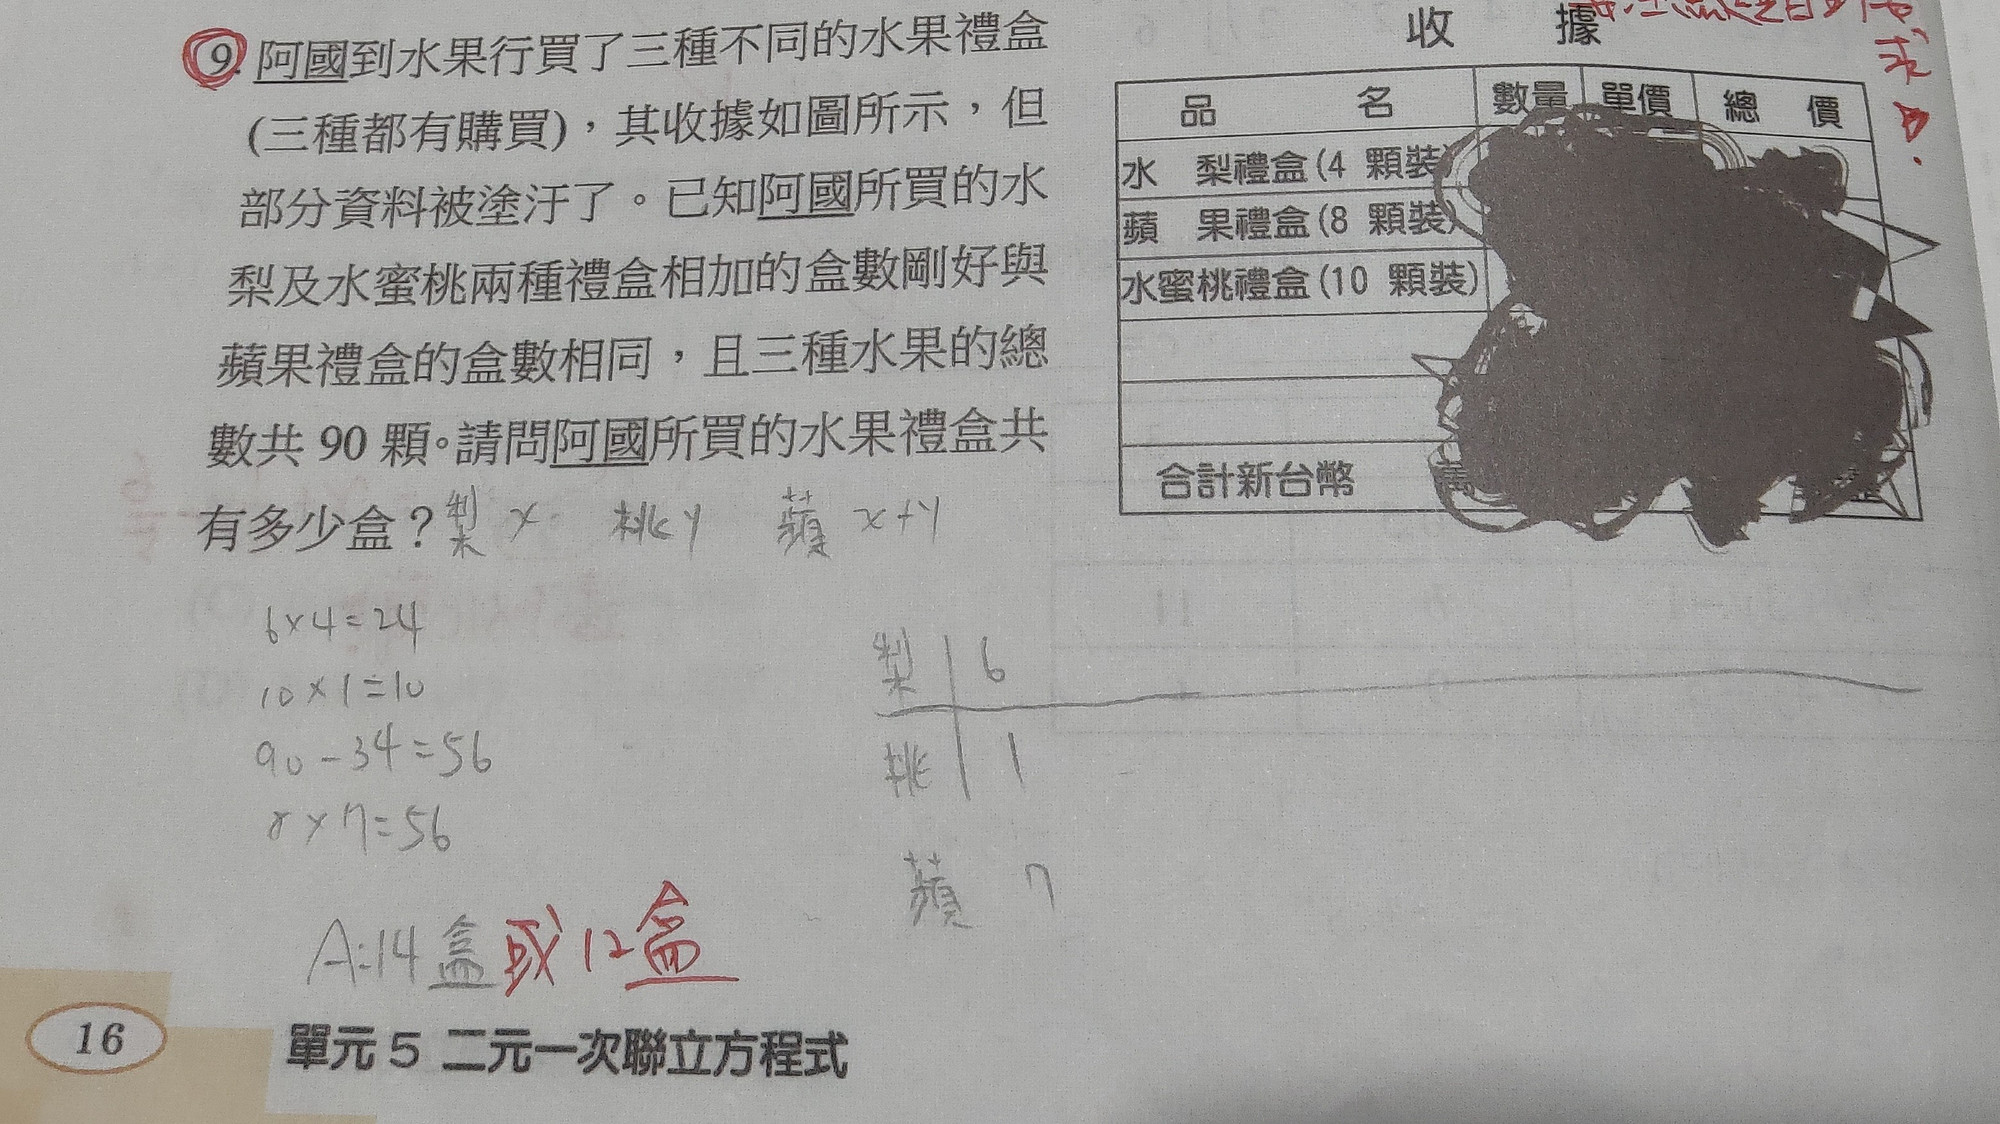 9. 阿國到水果行買了三種不同的水果禮盒
(三種都有購買),其收據如圖所示,但
部分資料被塗汙了。已知阿國所買的水
梨及水蜜桃兩種禮盒相加的盒數剛好與
蘋果禮盒的盒數相同,且三種水果的總
數共 90 顆。請問阿國所買的水果禮盒共
有多少盒?
梨 x 桃 y 蘋 x+y
收 據
求
品 名 數量 單價 總 價
水 梨禮盒(4 顆裝)
蘋 果禮盒(8 顆裝)
水蜜桃禮盒(10 顆裝)
合計新台幣 萬
6×4=24
10×1=10
90-34=56
8×7=56
梨 6
桃 1
蘋 7
A:14盒或12盒
16 單元 5 二元一次聯立方程式